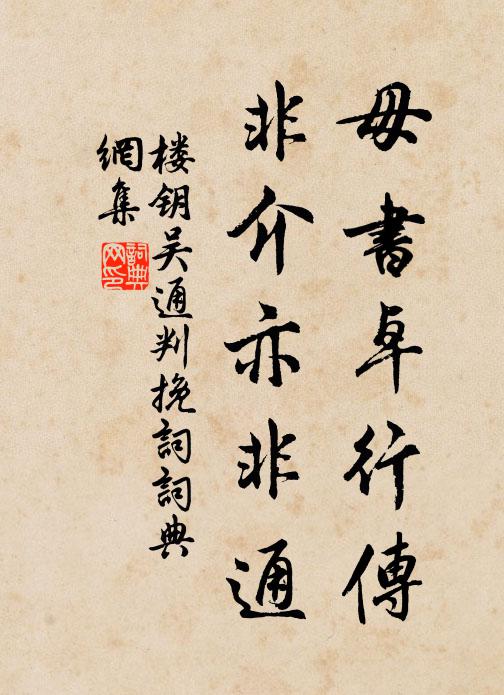 毋書卓行傳
非介亦非通
楼钥吴通判挽詞詞典
網集
詞典网印